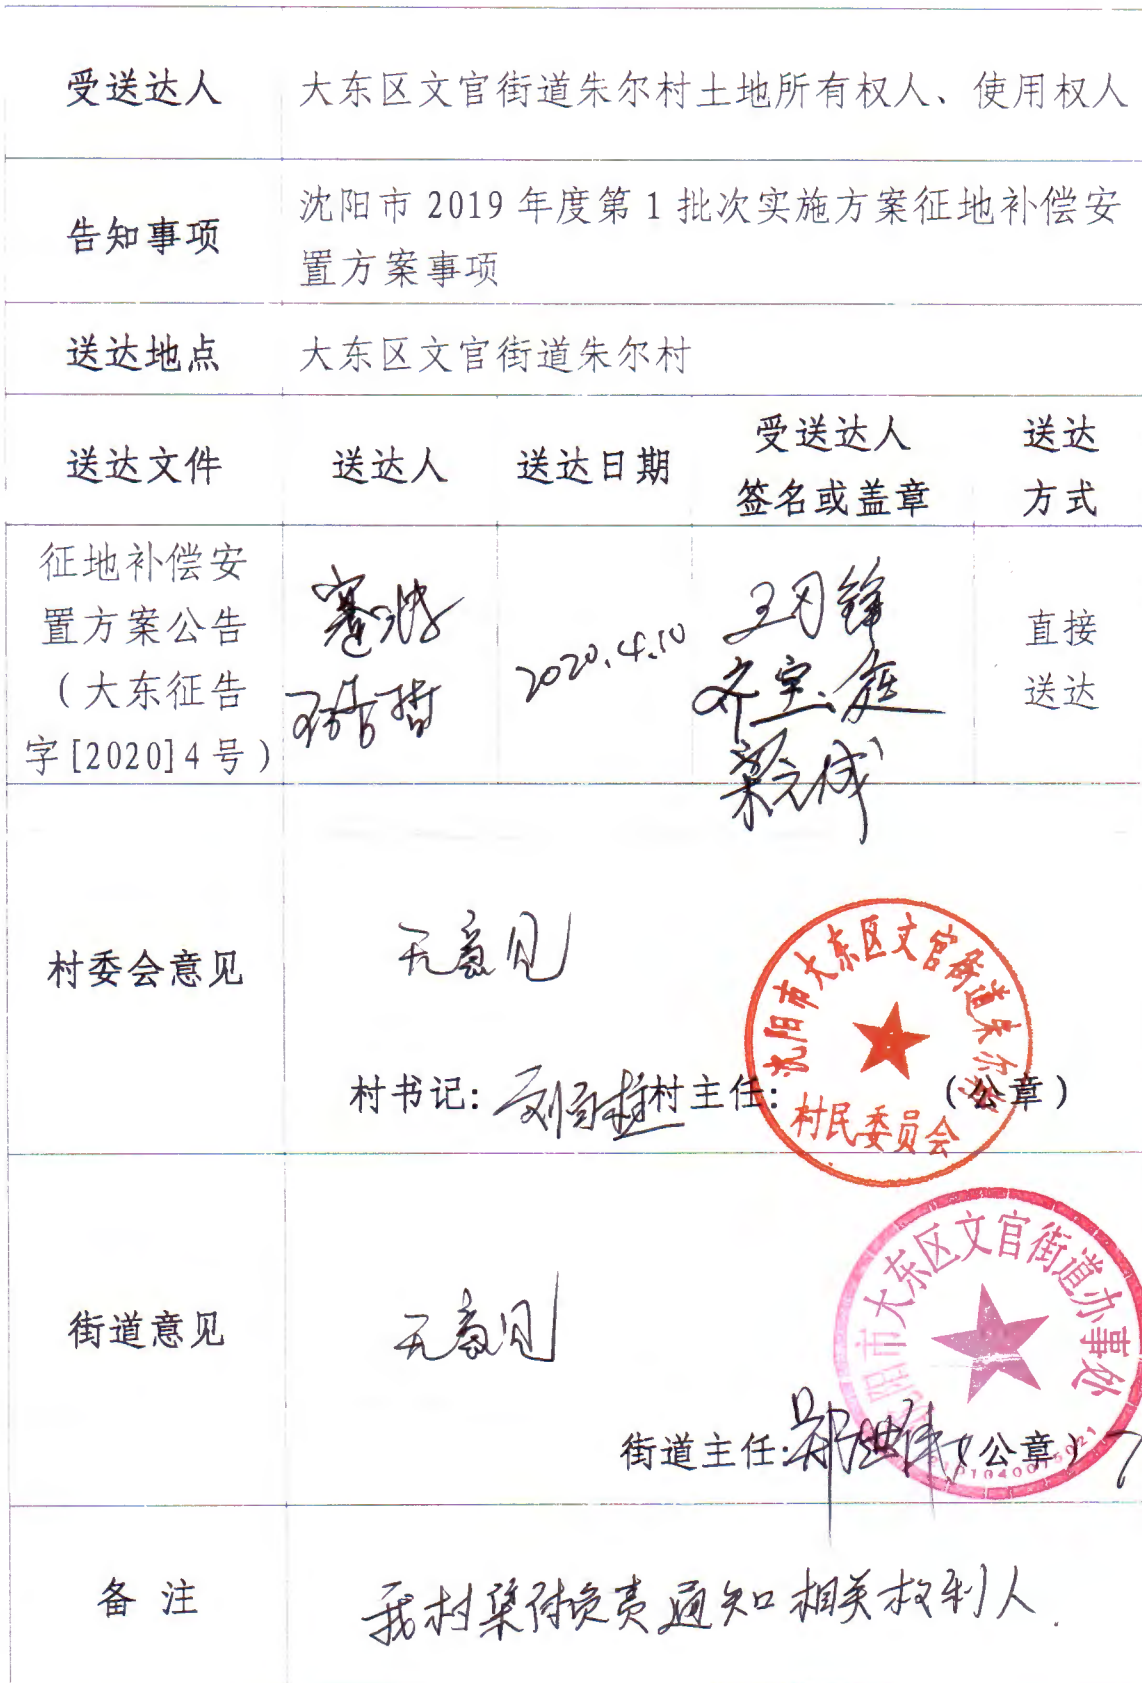 受送达人 大东区文官街道朱尔村土地所有权人、使用权人
告知事项 沈阳市 2019 年度第 1 批次实施方案征地补偿安
置方案事项
送达地点 大东区文官街道朱尔村
送达文件 送达人 送达日期 受送达人
签名或盖章 送达
方式
征地补偿安
置方案公告
（大东征告
字[2020]4号）
2020.4.10
齐宝庭
梁元成
直接
送达
村委会意见 无意见
沈阳市大东区文官街道朱尔村
村民委员会
村书记： 村主任： （公章）
街道意见 无意见
沈阳市大东区文官街道办事处
街道主任： （公章）
备 注 我村集体负责通知相关权利人.